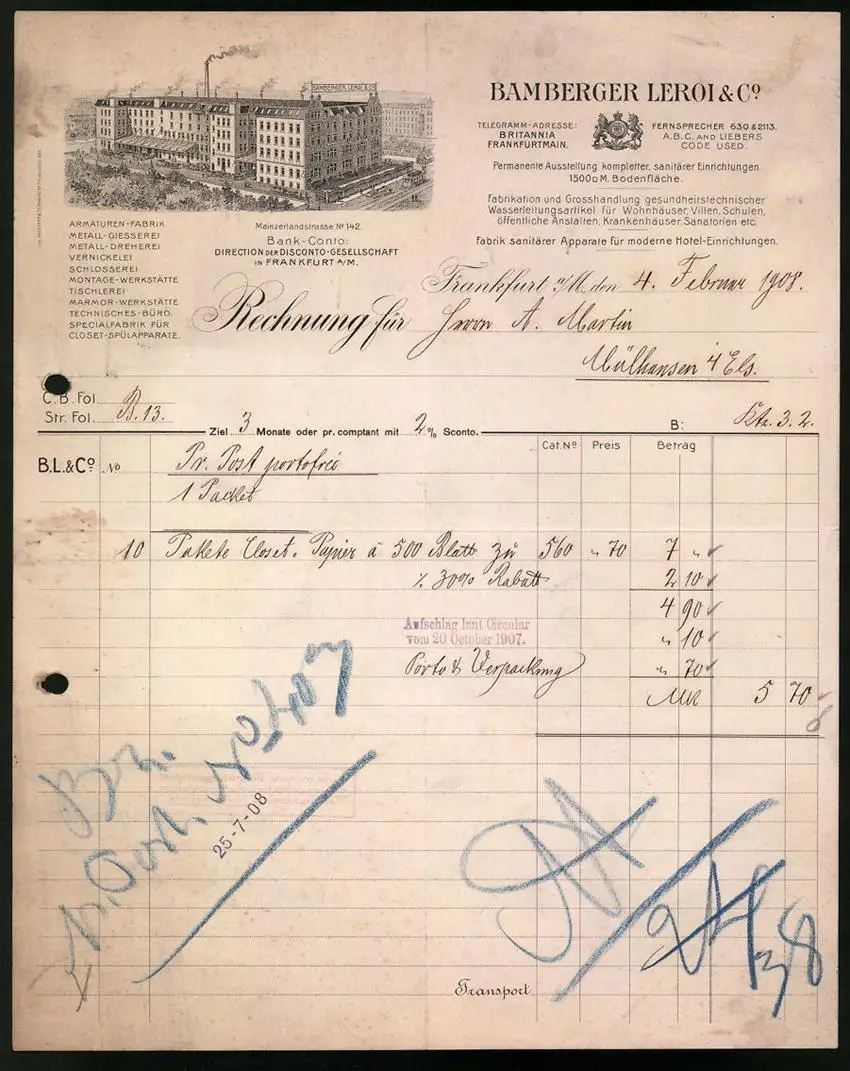 BAMBERGER LEROI & Co
BAMBERGER LEROI & Co.
TELEGRAMM-ADRESSE:
BRITANNIA
FRANKFURTMAIN.
FERNSPRECHER 630 & 2113.
A.B.C. AND LIEBERS
CODE USED.
Permanente Ausstellung kompletter, sanitärer Einrichtungen
1500□M. Bodenfläche.
Fabrikation und Grosshandlung gesundheitstechnischer
Wasserleitungsartikel für Wohnhäuser, Villen, Schulen,
öffentliche Anstalten, Krankenhäuser, Sanatorien etc.
Fabrik sanitärer Apparate für moderne Hotel-Einrichtungen.
ARMATUREN-FABRIK
METALL-GIESSEREI
METALL-DREHEREI
VERNICKELEI
SCHLOSSEREI
MONTAGE-WERKSTÄTTE
TISCHLEREI
MARMOR-WERKSTÄTTE
TECHNISCHES-BÜRO.
SPECIALFABRIK FÜR
CLOSET-SPÜLAPPARATE.
Mainzerlandstrasse No 142.
Bank-Conto:
DIRECTION DER DISCONTO-GESELLSCHAFT
IN FRANKFURT A/M.
Frankfurt a/M, den 4. Februar 1908.
Rechnung für Herrn A. Martin
Mülhausen i/Els.
C.B. Fol.
Str. Fol. B. 13.
Ziel 3 Monate oder pr. comptant mit 2 % Sconto.
B: Ktr. 3.2.
Cat. No Preis Betrag
B.L.& Co No Pr. Post portofrei
1 Packet
10 Pakete Closet-Papier à 500 Blatt zu 560 " 70 7 "
% 30% Rabatt 2 10
4 90
Aufschlag laut Circular
vom 20 October 1907. " 10
Porto & Verpackung " 70
Mk 5 70
25-7-08
Transport